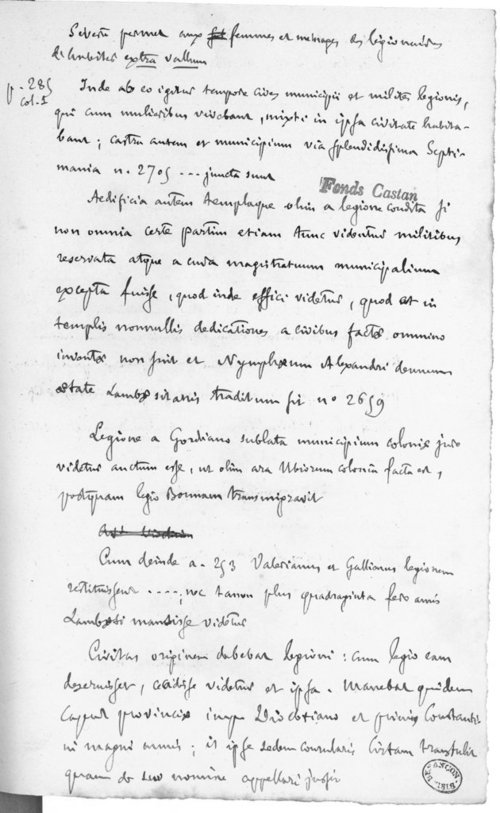 Sévère permet aux femmes et ménages des légionnaires
d'habiter extra vallum
p. 285
col. 1
Inde ab eo igitur tempore cives municipii et milites legionis,
qui cum mulieribus vivebant, mixti in ipsa civitate habita-
bant ; castra autem et municipium via splendidissima Septi-
miana n. 2705 --- juncta sunt
Fonds Castan
Aedificia autem templaque olim a legione condita si
non omnia certe partim etiam tunc videntur militibus
reservata atque a cura magistratuum municipalium
excepta fuisse, quod inde effici videtur, quod et in
templis nonnullis dedicationes a civibus factæ omnino
inventæ non sint et Nymphæum Alexandri demum
ætate Lambæsitanis traditum sit nº 2659
Legione a Gordiano sublata municipium coloniæ jure
videtur auctum esse, ut olim ara Ubiorum colonia facta est,
postquam legio Bonnam transmigravit
Cum deinde a. 253 Valerianus et Gallienus legionem
restituissent ----, nec tamen plus quadraginta fere annis
Lambæsi mansisse videtur
Civitas originem debebat legioni : cum legio eam
deseruisset, cecidisse videtur et ipsa. Manebat quidem
caput provinciæ imp Diocletiano et primis Constanti-
ni magni annis ; is ipse sedem consularis Cirtam transtulit
quam de suo nomine appellari jussit
BESANÇON
BIBL.